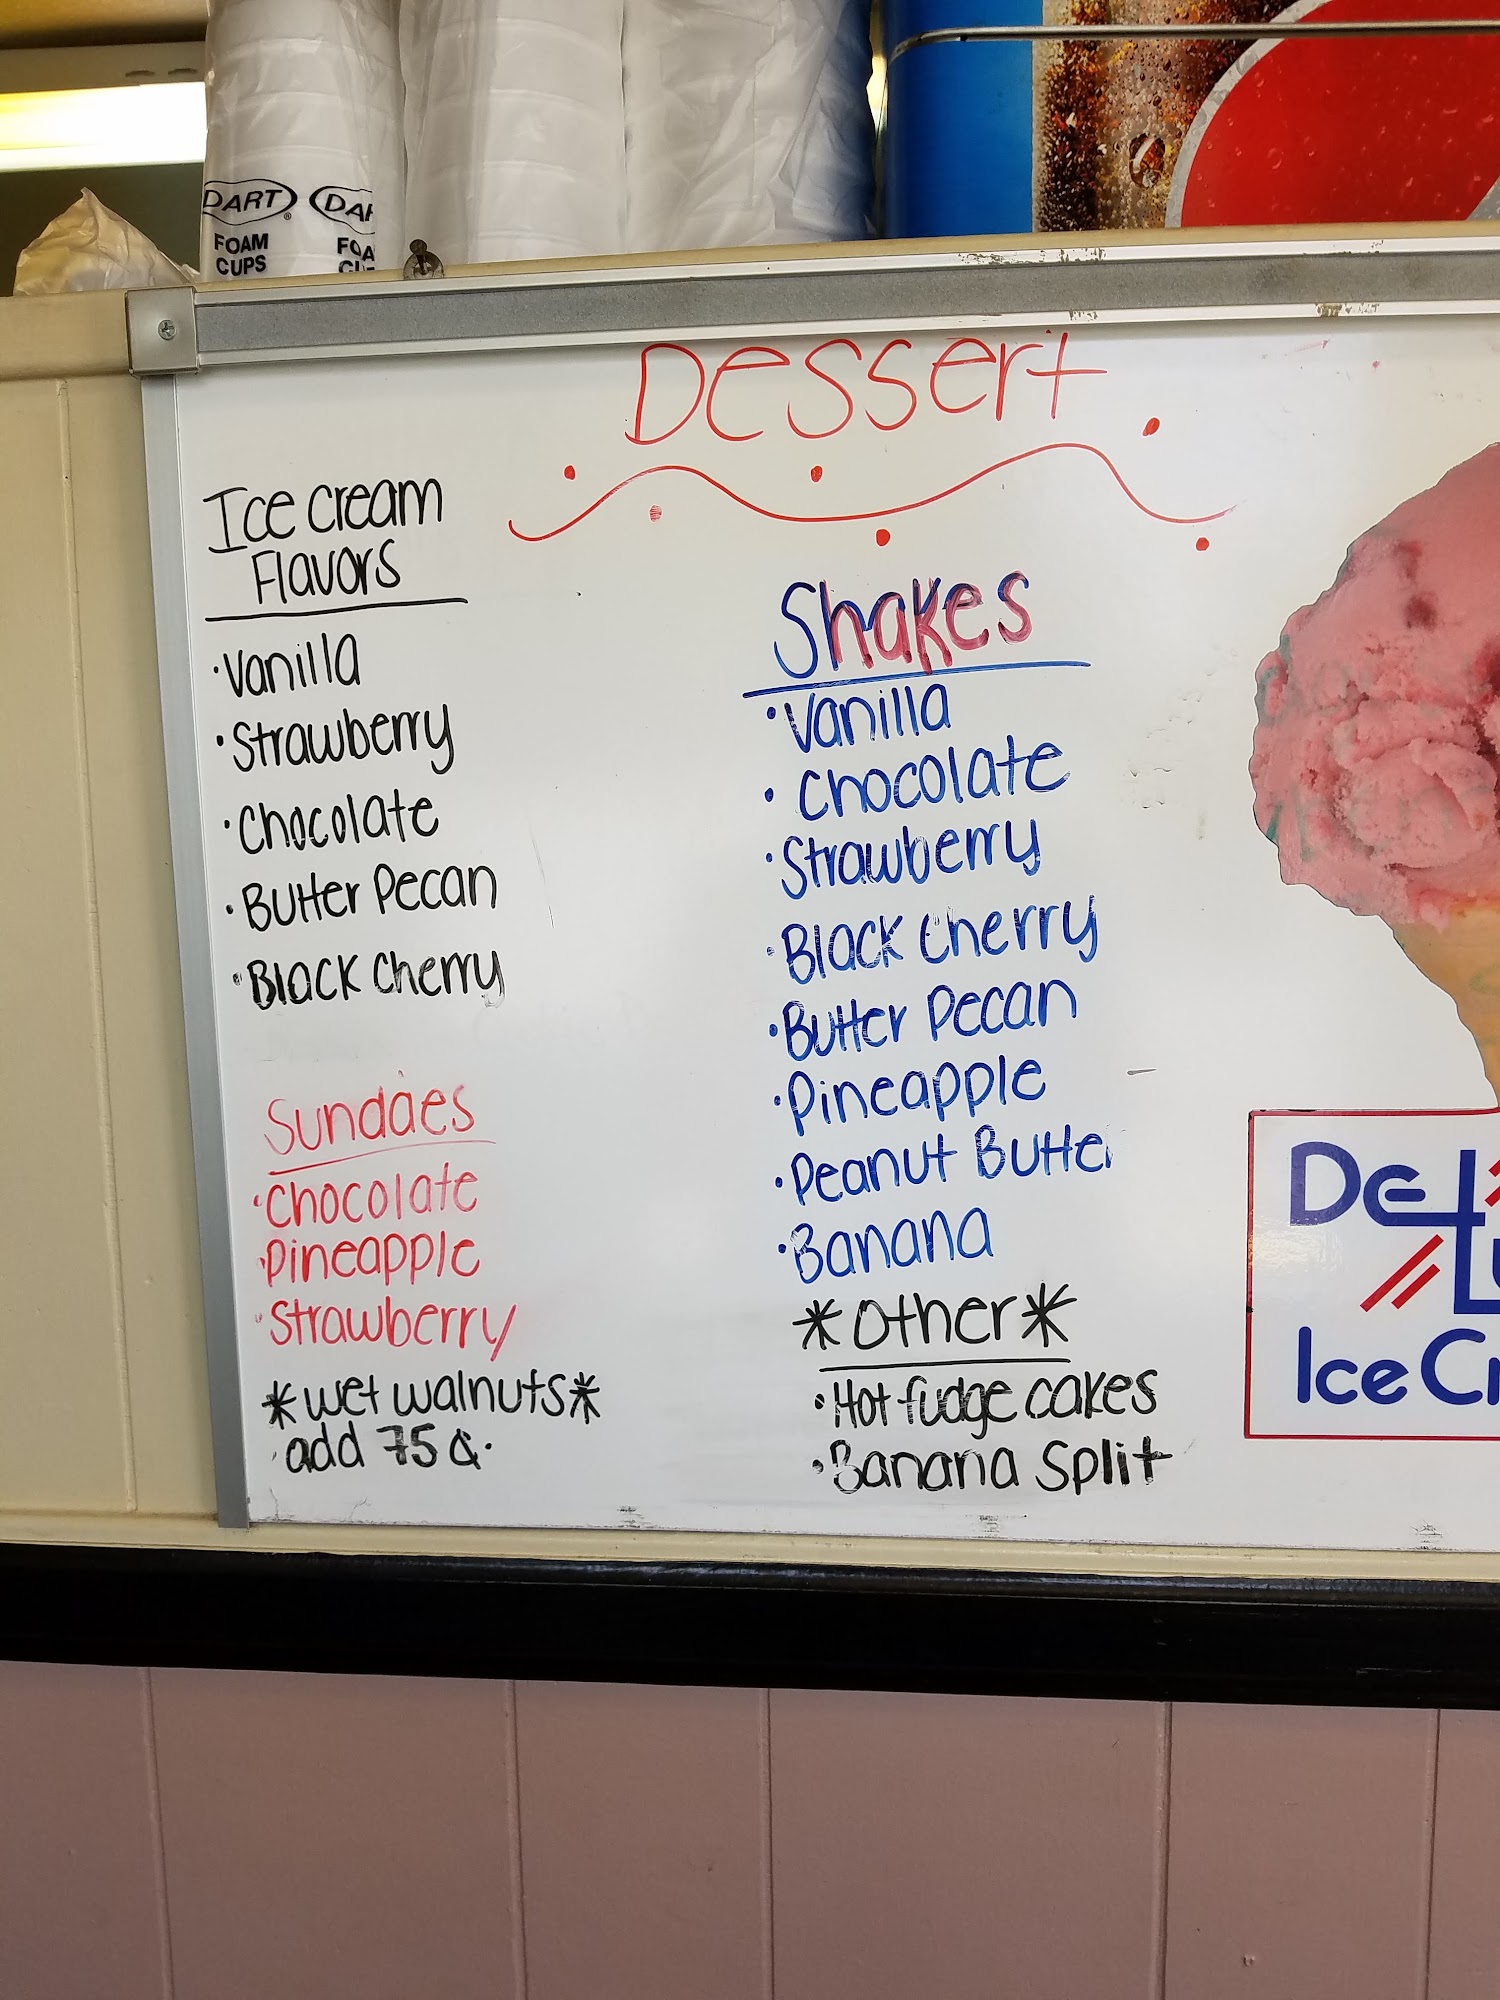 DART DAR
FOAM FOA
CUPS CU
Dessert
Ice cream
Flavors
·Vanilla
·Strawberry
·Chocolate
·Butter Pecan
·Black Cherry
Sundaes
·Chocolate
·Pineapple
·Strawberry
*wet walnuts*
·add 75¢·
Shakes
·Vanilla
·Chocolate
·Strawberry
·Black Cherry
·Butter Pecan
·Pineapple
·Peanut Butter
·Banana
*other*
·Hot fudge cakes
·Banana Split
DeL
Lu
Ice Cr